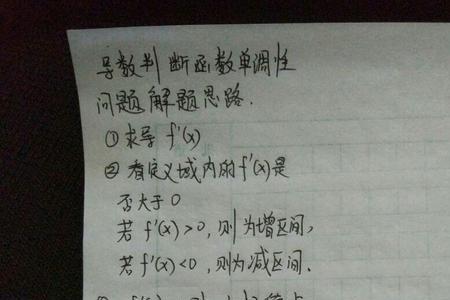 导数判断函数单调性
问题解题思路.
①求导 f'(x)
②看定义域内的f'(x)是
否大于0
若 f'(x)>0, 则为增区间,
若 f'(x)<0, 则为减区间.